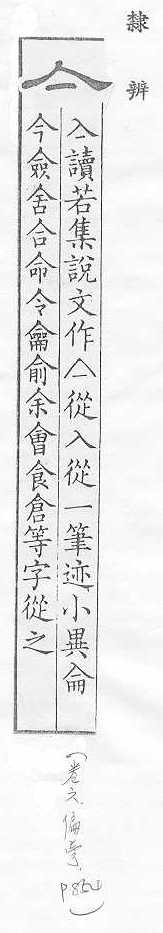 隸辨
亼
亼讀若集說文作亼從入從一筆迹小異侖
今僉舍合命令龠俞余會食倉等字從之
(卷六.偏旁.